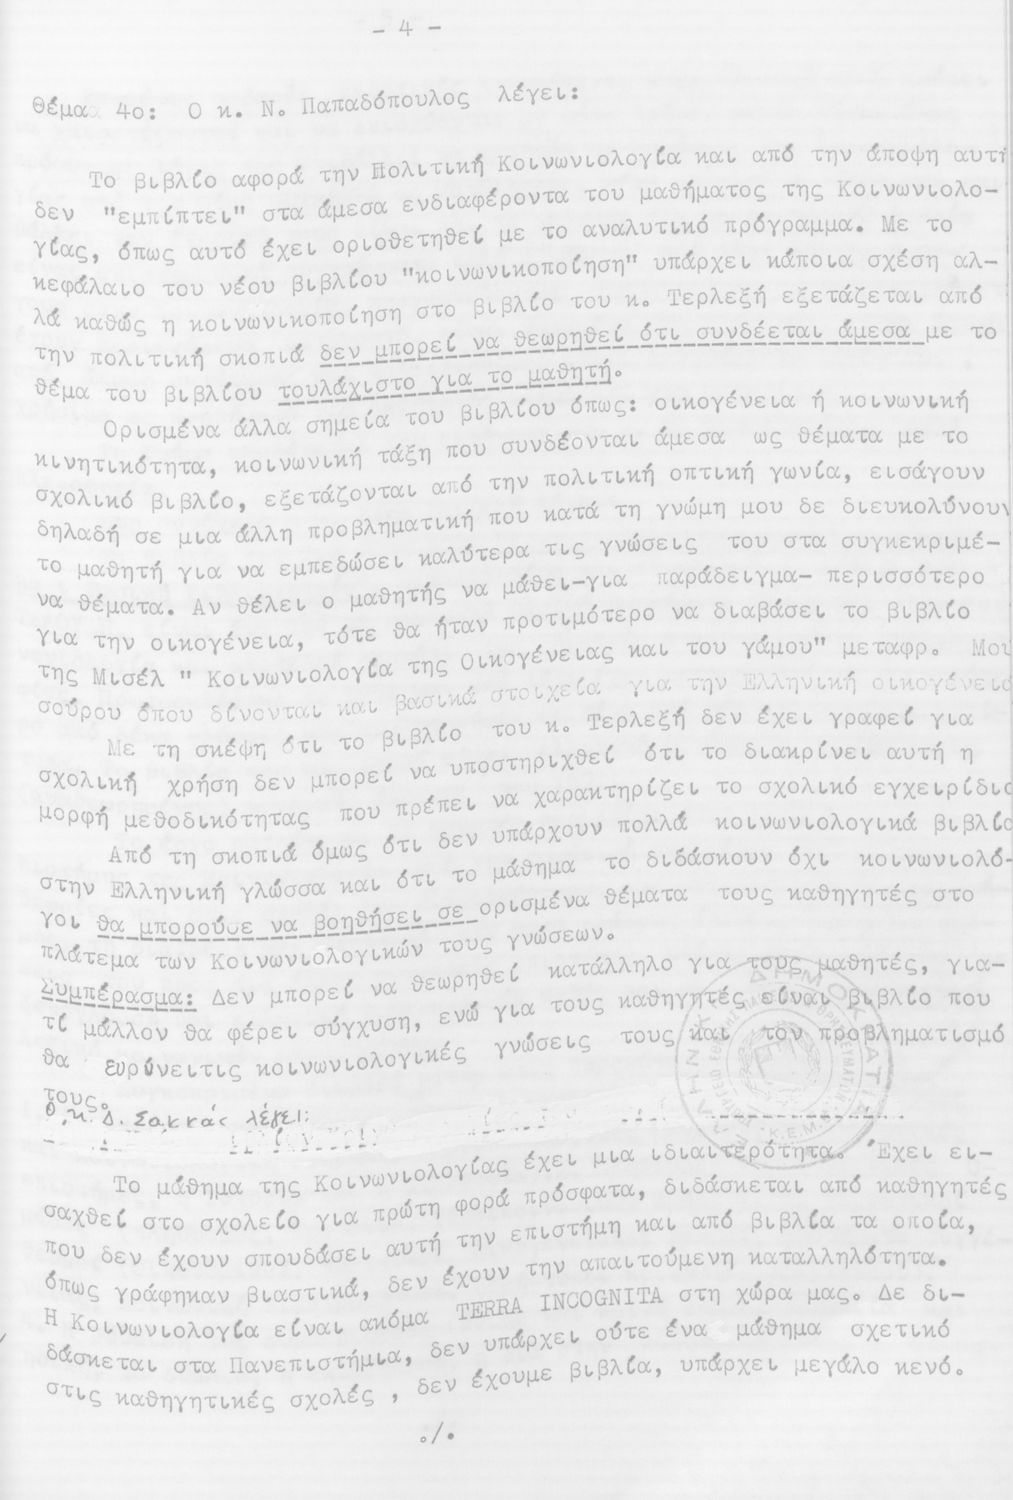 - 4 -
Θέμα 4ο: Ο κ. Ν. Παπαδόπουλος λέγει:
Το βιβλίο αφορά την Πολιτική Κοινωνιολογία και από την άποψη αυτή
δεν "εμπίπτει" στα άμεσα ενδιαφέροντα του μαθήματος της Κοινωνιολο-
γίας, όπως αυτό έχει οριοθετηθεί με το αναλυτικό πρόγραμμα. Με το
κεφάλαιο του νέου βιβλίου "κοινωνικοποίηση" υπάρχει κάποια σχέση αλ-
λά καθώς η κοινωνικοποίηση στο βιβλίο του κ. Τερλεξή εξετάζεται από
την πολιτική σκοπιά δεν μπορεί να θεωρηθεί ότι συνδέεται άμεσα με το
θέμα του βιβλίου τουλάχιστο για το μαθητή.
Ορισμένα άλλα σημεία του βιβλίου όπως: οικογένεια ή κοινωνική
κινητικότητα, κοινωνική τάξη που συνδέονται άμεσα ως θέματα με το
σχολικό βιβλίο, εξετάζονται από την πολιτική οπτική γωνία, εισάγουν
δηλαδή σε μια άλλη προβληματική που κατά τη γνώμη μου δε διευκολύνουν
το μαθητή για να εμπεδώσει καλύτερα τις γνώσεις του στα συγκεκριμέ-
να θέματα. Αν θέλει ο μαθητής να μάθει-για παράδειγμα- περισσότερο
για την οικογένεια, τότε θα ήταν προτιμότερο να διαβάσει το βιβλίο
της Μισέλ " Κοινωνιολογία της Οικογένειας και του γάμου" μεταφρ. Μου
σούρου όπου δίνονται και βασικά στοιχεία για την Ελληνική οικογένεια
Με τη σκέψη ότι το βιβλίο του κ. Τερλεξή δεν έχει γραφεί για
σχολική χρήση δεν μπορεί να υποστηριχθεί ότι το διακρίνει αυτή η
μορφή μεθοδικότητας που πρέπει να χαρακτηρίζει το σχολικό εγχειρίδιο
Από τη σκοπιά όμως ότι δεν υπάρχουν πολλά κοινωνιολογικά βιβλία
στην Ελληνική γλώσσα και ότι το μάθημα το διδάσκουν όχι κοινωνιολό-
γοι θα μπορούσε να βοηθήσει σε ορισμένα θέματα τους καθηγητές στο
πλάτεμα των Κοινωνιολογικών τους γνώσεων.
Συμπέρασμα: Δεν μπορεί να θεωρηθεί κατάλληλο για τους μαθητές, για-
τί μάλλον θα φέρει σύγχυση, ενώ για τους καθηγητές είναι βιβλίο που
θα ευρύνειτις κοινωνιολογικές γνώσεις τους και τον προβληματισμό
τους.
Ο κ. Δ. Σακκάς λέγει:
Το μάθημα της Κοινωνιολογίας έχει μια ιδιαιτερότητα. Έχει ει-
σαχθεί στο σχολείο για πρώτη φορά πρόσφατα, διδάσκεται από καθηγητές
που δεν έχουν σπουδάσει αυτή την επιστήμη και από βιβλία τα οποία,
όπως γράφηκαν βιαστικά, δεν έχουν την απαιτούμενη καταλληλότητα.
Η Κοινωνιολογία είναι ακόμα TERRA INCOGNITA στη χώρα μας. Δε δι-
δάσκεται στα Πανεπιστήμια, δεν υπάρχει ούτε ένα μάθημα σχετικό
στις καθηγητικές σχολές , δεν έχουμε βιβλία, υπάρχει μεγάλο κενό.
./.